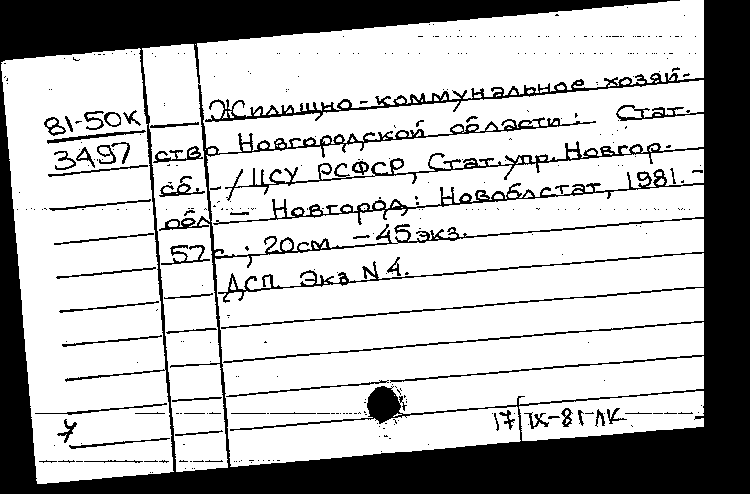 81-50к
3497
Жилищно-коммунальное хозяй-
ство Новгородской области: Стат.
сб. / ЦСУ РСФСР, Стат. упр. Новгор.
обл. - Новгород: Новоблстат, 1981. -
57 с.; 20 см. - 45 экз.
ДСП. Экз. N 4.
17/IX-81 ЛК
7